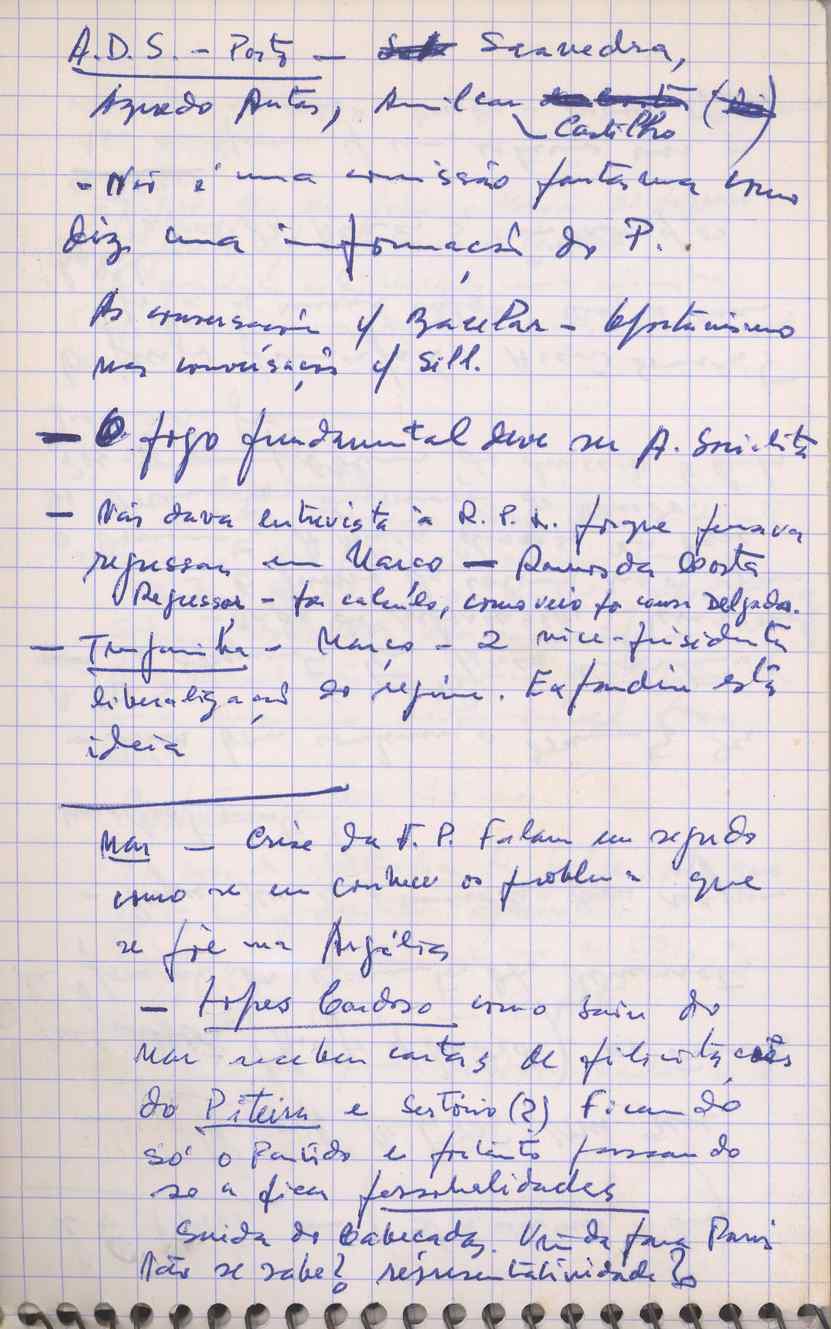 A.D.S. - Porto - Saavedra,
Azevedo Antas, Amilcar
Castilho
- Não é uma comissão fantasma como
diz uma informação do P.
As conversações c/ Bacelar - Optimismo
nas conversações c/ Sill.
- O fogo fundamental deve ser A. Socialista
- Não dava entrevista à R.P.L. porque pensava
regressar em Março - Ramos da Costa
Regressar - foi calculo, como veio p.
Delgado.
- Março - 2 vice-presidentes
liberalização do régime. Expandiu esta
ideia
Mar - Crise da F.P. Falam em segredo
como se eu conhece os problema que
se põe na Argélia
- Lopes Cardoso como saiu do
Mar recebeu cartas de felicitações
do Piteira e Sertório (?) Ficando
só o Partido e portanto passando
so a ficar personalidades
Saida do Cabeçadas. Vinda para Paris
Não se sabe? representatividade?